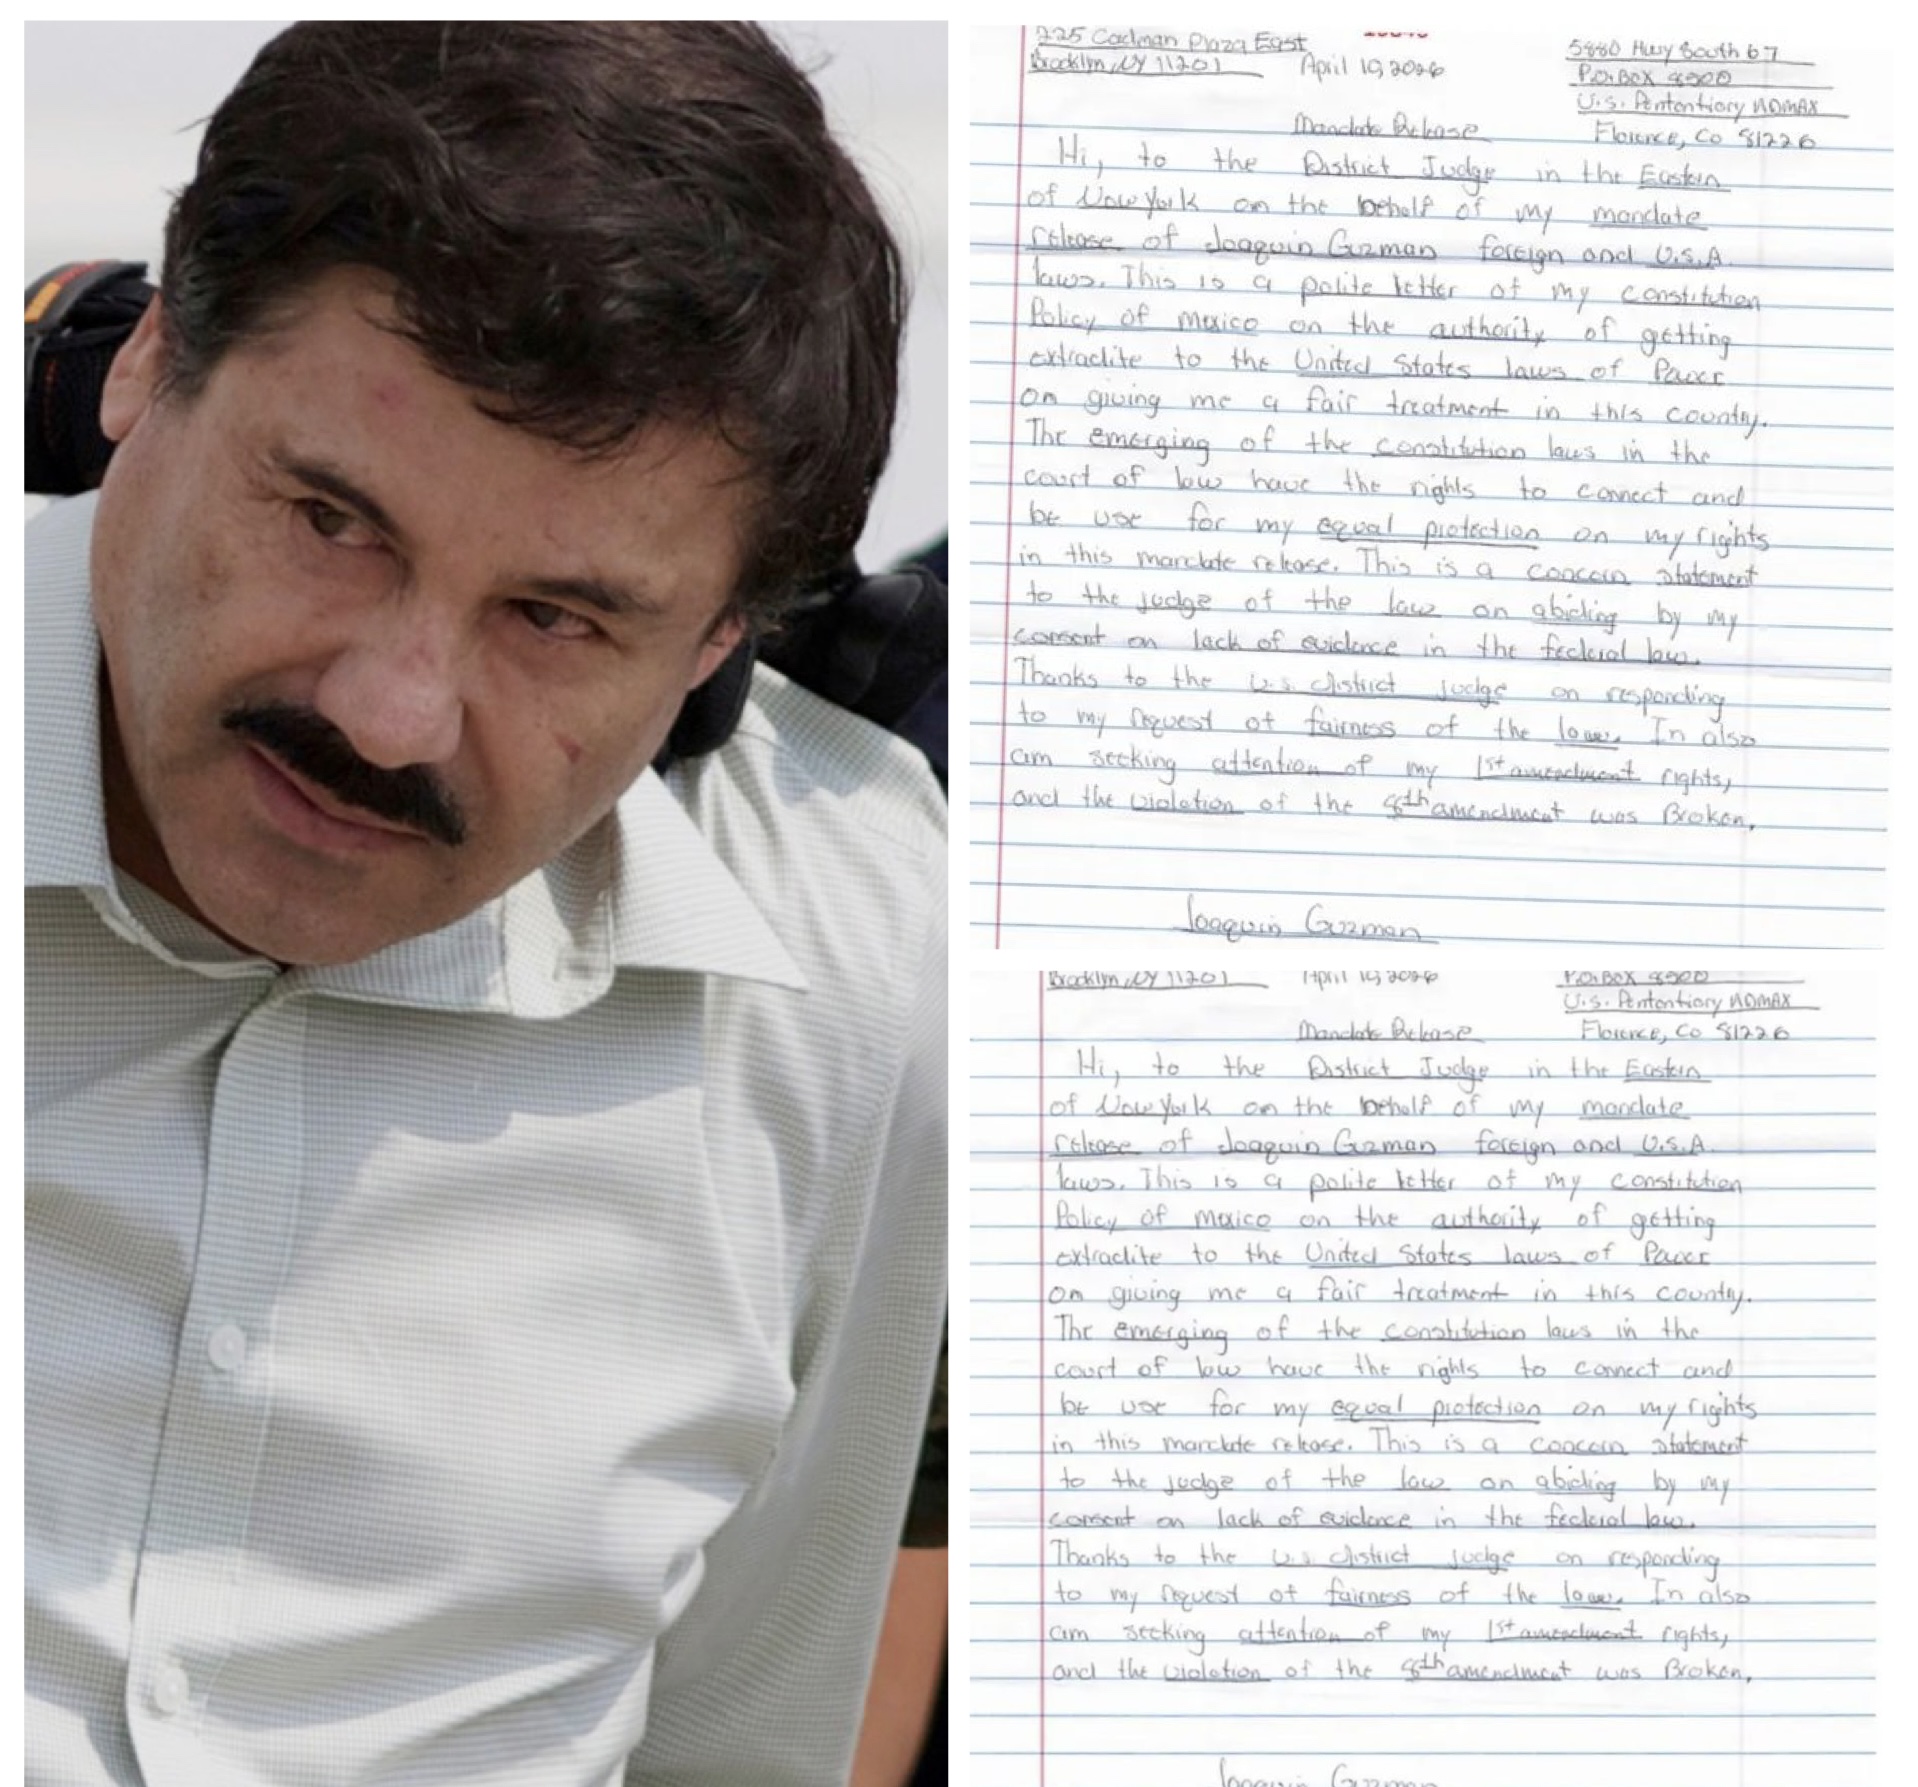 225 Cadman Plaza East
Brooklyn, NY 11201
April 19, 2026
5880 Hwy South 67
P.O. Box 8500
U.S. Pentontiary ADMAX
Florence, Co 81226
Mandate Release
Hi, to the District Judge in the Eastern
of New York on the behalf of my mandate
release of Joaquin Guzman foreign and U.S.A.
laws. This is a polite letter of my constitution
Policy of mexico on the authority of getting
extradite to the United States laws of Power
on giving me a fair treatment in this country.
The emerging of the constitution laws in the
court of law have the rights to connect and
be use for my equal protection on my rights
in this mandate release. This is a concern statement
to the judge of the law on abiding by my
consent on lack of evidence in the federal law.
Thanks to the U.S. district judge on responding
to my request of fairness of the law. In also
am seeking attention of my 1st amendment rights,
and the violation of the 8th amendment was Broken.
Joaquin Guzman
Brooklyn, NY 11201
April 19, 2026
P.O. Box 8500
U.S. Pentontiary ADMAX
Florence, Co 81226
Mandate Release
Hi, to the District Judge in the Eastern
of New York on the behalf of my mandate
release of Joaquin Guzman foreign and U.S.A.
laws. This is a polite letter of my constitution
Policy of mexico on the authority of getting
extradite to the United States laws of Power
on giving me a fair treatment in this country.
The emerging of the constitution laws in the
court of law have the rights to connect and
be use for my equal protection on my rights
in this mandate release. This is a concern statement
to the judge of the law on abiding by my
consent on lack of evidence in the federal law.
Thanks to the U.S. district judge on responding
to my request of fairness of the law. In also
am seeking attention of my 1st amendment rights,
and the violation of the 8th amendment was Broken.
Joaquin Guzman